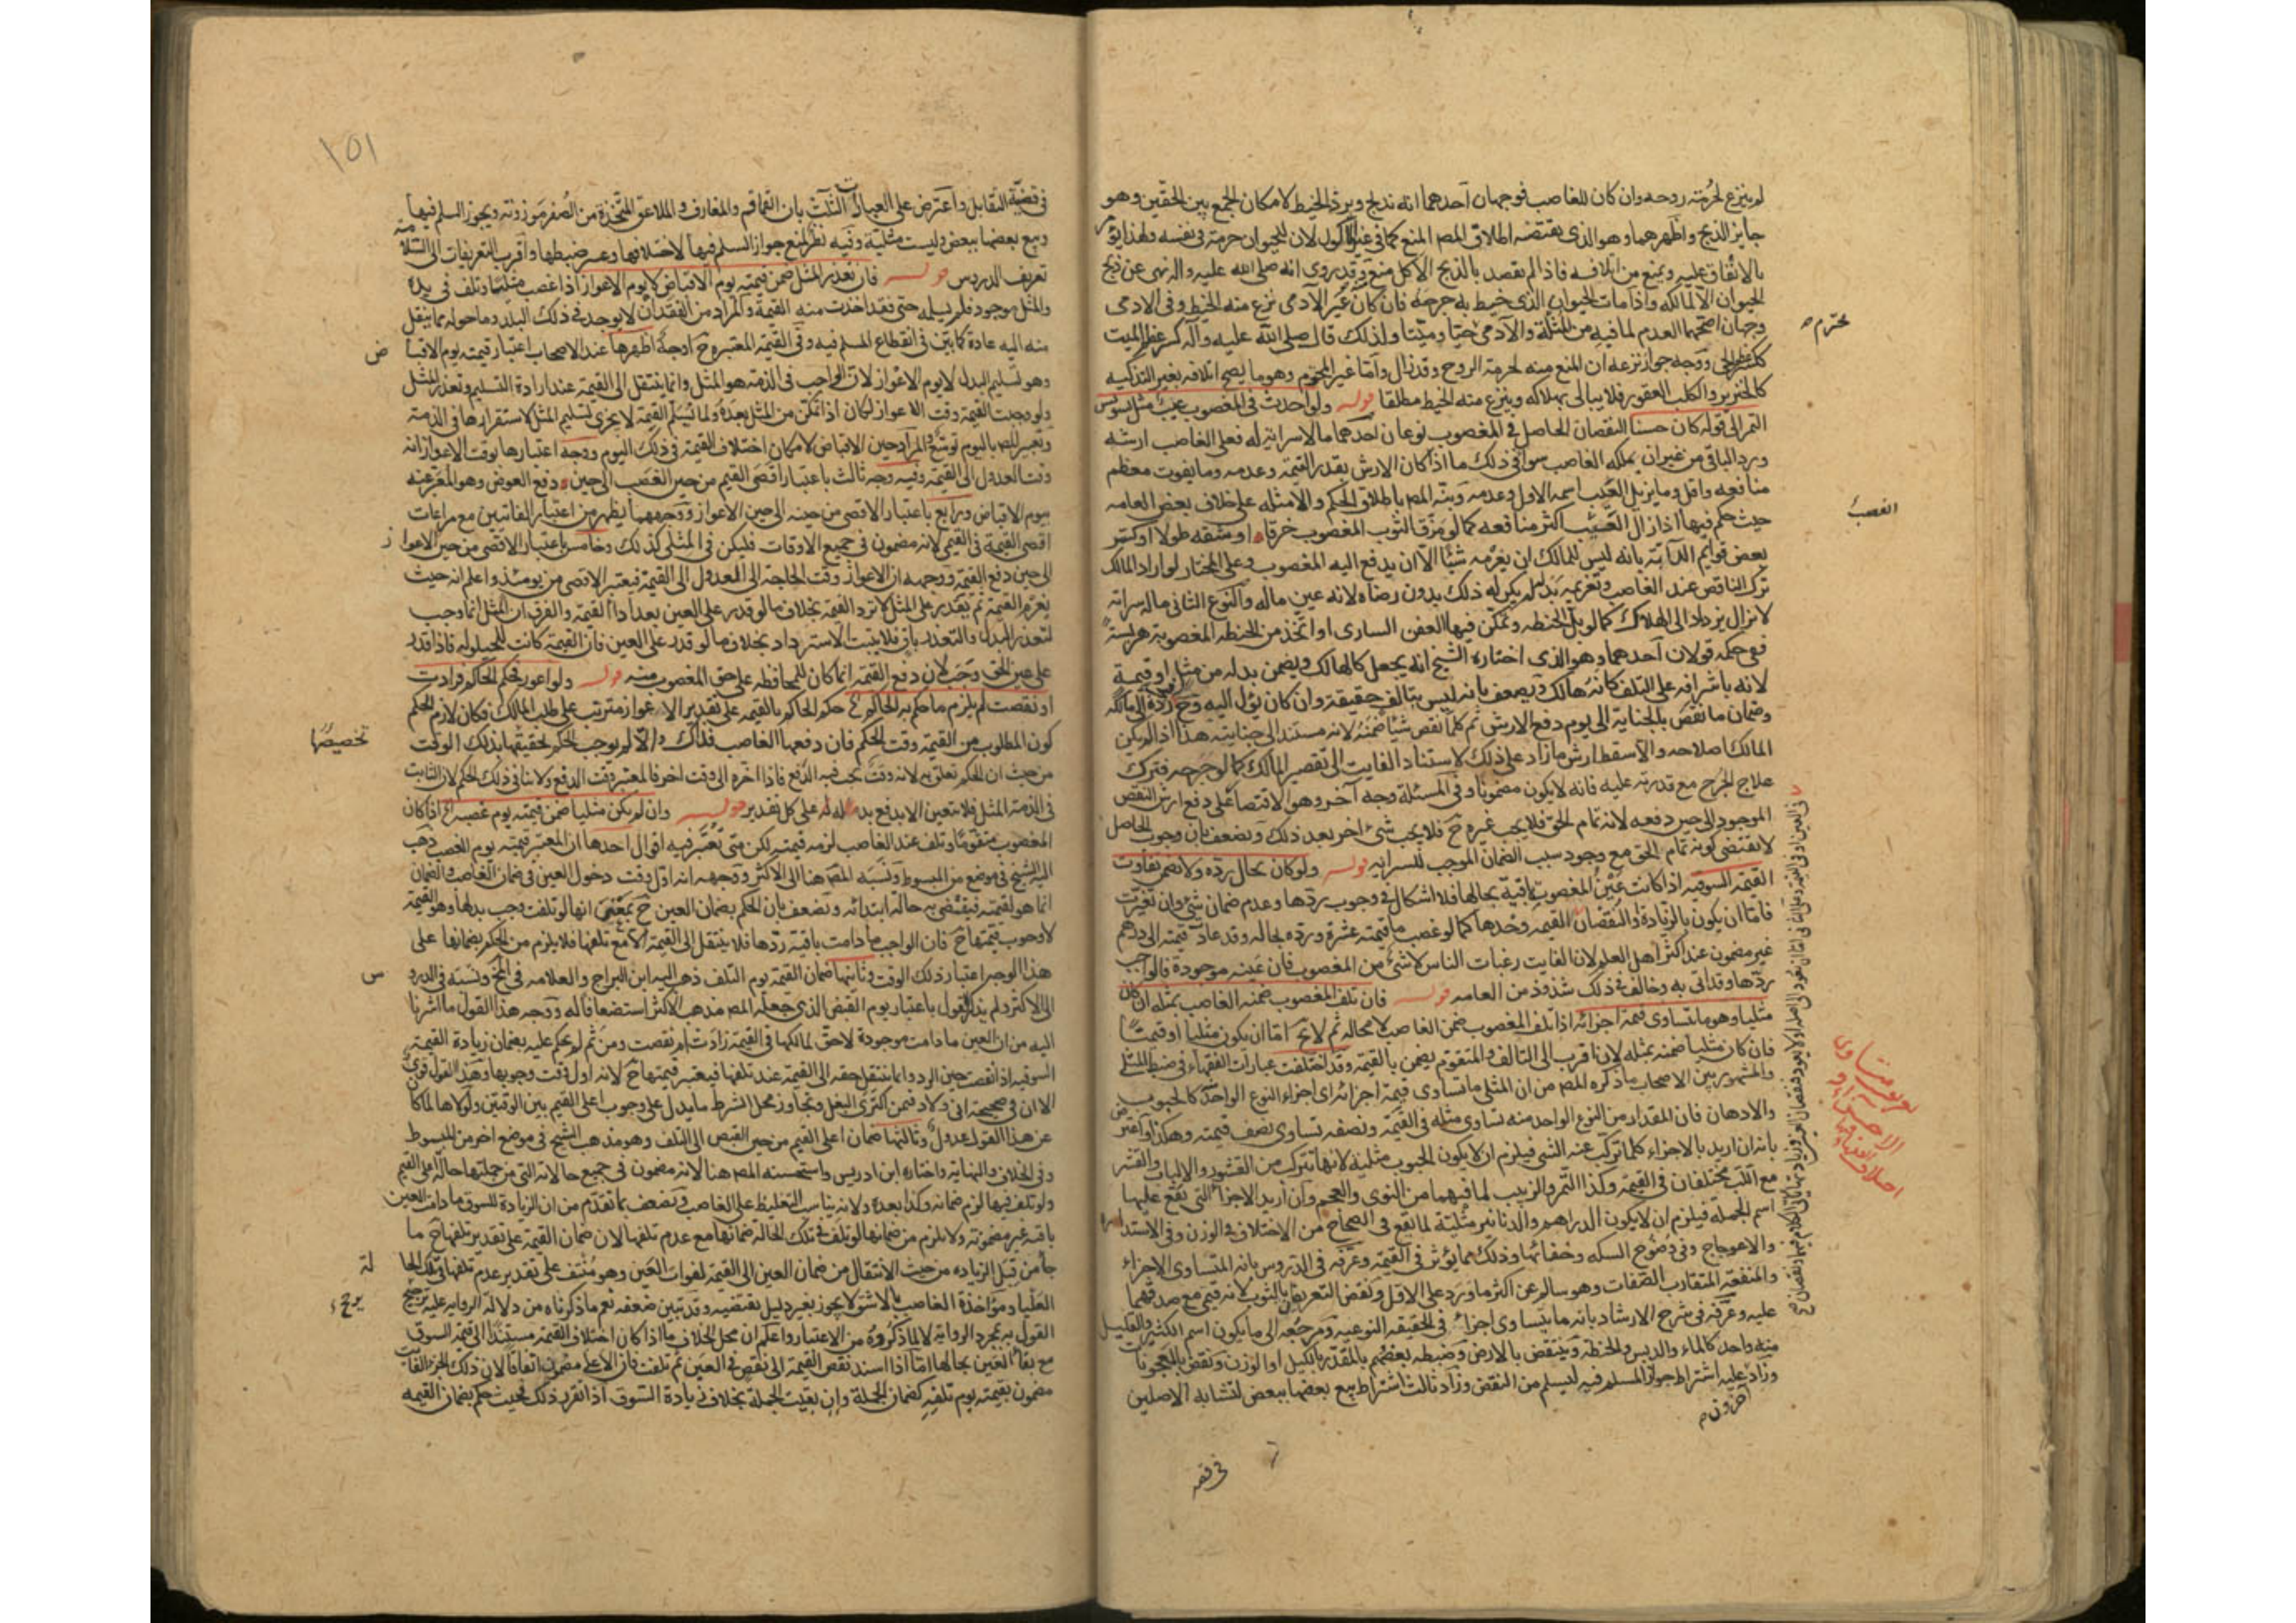 لم ينزع لحرمة روحه وان كان للغاصب فوجهان احدهما انه يذبح ويرد الخيط لامكان الجمع بين الحقين وهو
جايز الذبح واظهرهما وهو الذي يقتضيه اطلاق المصـ المنع كما في غير المأكول لان للحيوان حرمة في نفسه ولهذا يؤمر
بالانفاق عليه ويمنع من اتلافه فاذا لم يقصد بالذبح الاكل منع وقد روى انه صلى الله عليه واله نهى عن ذبح
الحيوان الا لمأكله واذا مات الحيوان الذي خيط به جرحه فان كان غير الآدمي نزع منه الخيط وفي الادمي
وجهان اصحهما العدم لما فيه من المثلة والآدمي محترم حيا وميتا ولذلك قال صلى الله عليه وآله كسر عظم الميت
ككسر عظم الحي ووجه جواز نزعه ان المنع منه لحرمة الروح وقد زال واما غير المحترم وهو ما يصح اتلافه بغير التذكية
كالخنزير والكلب العقور فلا يبالى بهلاكه وينزع منه الخيط مطلقا قوله ولو حدث في المغصوب عيب مثل تسويس
التمر الى قوله كان حسنا النقصان الحاصل في المغصوب نوعان احدهما ما لا سراية له فعلى الغاصب ارشه
ورد الباقي من غير ان يملكه الغاصب سوا في ذلك ما اذا كان الارش بقدر القيمة وعدمه وما يفوت معظم
منافعه واقل وما يزيل العيب اسمه الاول وعدمه ونبه المصـ باطلاق الحكم والامثلة على خلاف بعض العامه
حيث حكم فيها اذا زال العيب اكثر منافعه كما لو مزق الثوب المغصوب خرقا او شقه طولا او كسر
بعض قوايم الدابة بانه ليس للمالك ان يغرمه شيئا الا ان يدفع اليه المغصوب وعلى المختار لو اراد المالك
ترك الناقص عند الغاصب وتغريمه بدله لم يكن له ذلك بدون رضاه لانه عين ماله والنوع الثاني ما له سراية
لا تزال يزداد الى الهلاك كما لو بل الحنطه وتمكن فيها العفن السارى او اتخذ من الحنطه المغصوبة هريسة
ففي حكمه قولان احدهما وهو الذي اختاره الشيخ انه يجعل كالهالك ويضمن بدله من مثل او قيمة
لانه باشرافه على التلف كانه هالك ويضعف بانه ليس بتالف حقيقة وان كان يؤل اليه وحـ رده الى مالكه
وضمان ما نقص بالجناية الى يوم دفع الارش ثم كلما نقص شيئا ضمنه لانه مستند الى جنايته هذا اذا لم يمكن
المالك اصلاحه والا سقط ارش ما زاد على ذلك لاستناد الفايت الى تقصير المالك كما لو جرحه فترك
علاج الجرح مع قدرته عليه فانه لا يكون مضمونا وفي المسئلة وجه آخر وهو الاقتصار على دفع ارش النقص
الموجود الى حين دفعه لانه تمام الحق فلا يجب غيره حـ فلا يجب شئ اخر بعد ذلك ويضعف بان وجوب الحاصل
لا يقتضى كونه تمام الحق مع وجود سبب الضمان الموجب للسرايه قوله ولو كان بحاله رده ولا يضمن تفاوت
القيمة السوقيه اذا كانت عين المغصوب باقية بحالها فلا اشكال في وجوب ردها وعدم ضمان شئ وان تغيرت
فاما ان يكون بالزيادة والنقصان القيمه وحدها كما لو غصب ما قيمته عشرة ورده بحاله وقد عادت قيمته الى درهم
غير مضمون عند اكثر اهل العلم لان الفايت رغبات الناس لا شئ من المغصوب فان عينه موجودة فالواجب
ردها وقد اتى به وخالف في ذلك شذوذ من العامه قوله فان تلف المغصوب ضمنه الغاصب بمثله ان كان
مثليا وهو ما تتساوى قيمة اجزائه اذا تلف المغصوب ضمن الغاصب لا محاله ثم لا يخـ اما ان يكون مثليا او قيميا
فان كان مثليا ضمنه بمثله لانه اقرب الى التالف والمتقوم يضمن بالقيمة وقد اختلفت عبارات الفقهاء في ضبط المثلي
والمشهور بين الاصحاب ما ذكره المصـ من ان المثلي ما تساوى قيمة اجزائه اى اجزاء النوع الواحد كالحبوب
والادهان فان المقدار من النوع الواحد منه تساوى مثله في القيمة ونصفه تساوى نصف قيمته وهكذا واعترض
بانه ان اريد بالاجزاء كلما تركب عنه الشئ فيلزم ان لا يكون الحبوب مثلية لانها تتركب من القشور والالباب والقشر
مع اللب مختلفان في القيمة وكذا التمر والزبيب لما فيهما من النوى والعجم وان اريد الاجزاء التي يقع عليها
اسم الجملة فيلزم ان لا يكون الدراهم والدنانير مثلية لما يقع في الصحاح من الاختلاف في الوزن وفي الاستدارة
والاعوجاج وفي وضوح السكه وخفائها وذلك مما يؤثر في القيمة وعرفه في الدروس بانه المتساوى الاجزاء
والمنفعة المتقارب الصفات وهو سالم عن اكثر ما ورد على الاول ونقض التعريفان بالثوب لانه قيمي مع صدقهما
عليه وعرفه في شرح الارشاد بانه ما يتساوى اجزائه في الحقيقه النوعيه ومرجعه الى ما يكون اسم الكثير والقليل
منه واحدا كالماء والدبس والحنطة وينتقض بالارض وضبطه بعضهم بالمقدر بالكيل او الوزن ونقض بالمعجونات
وزاد عليه اشتراط جواز السلم فيه ليسلم من النقض وزاد ثالث اشتراط بيع بعضها ببعض لتشابه الاصلين
آخرون
في قضية
محترم
الغصب
١٥١
في قضية التقابل واعترض على العبارات الثلث بان القماقم والمغارف والملاعق المتخذة من الصفر موزونة ويجوز السلم فيها
وبيع بعضها ببعض وليست مثلية وفيه نظر لمنع جواز السلم فيها لاختلافها وعسر ضبطها واقرب التعريفات الى السلامة
تعريف الدروس قوله فان تعذر المثل ضمن قيمته يوم الاقباض لا يوم الاعواز اذا غصب مثليا وتلف في يده
والمثل موجود فلم يسلمه حتى فقد اخذت منه القيمة والمراد من الفقدان لا يوجد في ذلك البلد وما حوله مما ينقل
منه اليه عادة كما بين في انقطاع المسلم فيه وفي القيمة المعتبرة حـ اوجه اظهرها عند الاصحاب اعتبار قيمته يوم الاقباض
وهو تسليم البدل لا يوم الاعواز لان الواجب في الذمة هو المثل وانما ينتقل الى القيمة عند ارادة التسليم وتعذر المثل
ولو وجبت القيمة وقت الاعواز لكان اذا تمكن من المثل بعده ولما يسلم القيمة لا يجزى تسليم المثل لاستقرارها في الذمة
وتعبير المصـ باليوم توسع والمراد حين الاقباض لامكان اختلاف القيمة في ذلك اليوم ووجه اعتبارها بوقت الاعواز انه
وقت العدول الى القيمة وفيه وجه ثالث باعتبار اقصى القيم من حين الغصب الى حين دفع العوض وهو المعبر عنه
بيوم الاقباض ورابع باعتبار الاقصى من حينه الى حين الاعواز ووجههما يظهر من اعتبار الفائتين مع مراعات
اقصى القيمة في القيمي لانه مضمون في جميع الاوقات فليكن في المثلي كذلك وخامس باعتبار الاقصى من حين الاعواز
الى حين دفع القيمة ووجهه ان الاعواز وقت الحاجة الى العدول الى القيمة فيعتبر الاقصى من يومئذ واعلم انه حيث
يغرم القيمة ثم يقدر على المثل لا ترد القيمة بخلاف ما لو قدر على العين بعد اداء القيمة والفرق ان المثل انما وجب
لتعذر البدل والتعذر باق فلا يثبت الاسترداد بخلاف ما لو قدر على العين فان القيمة كانت للحيلولة فاذا قدر
على عين الحق وجب لان دفع القيمة انما كان للمحافظه على حق المغصوب منه قوله ولو اعوز فحكم الحاكم فزادت
او نقصت لم يلزم ما حكم به الحاكم حكم الحاكم بالقيمة على تقدير الاعواز مترتب على طلب المالك فكان لازم الحكم
كون المطلوب من القيمة وقت الحكم فان دفعها الغاصب فذاك والا لم يوجب الحكم تخصيصها بذلك الوقت
من حيث ان الحكم تعلق به لانه وقت يجب فيه الدفع فاذا اخره الى وقت اخر فالمعتبر وقت الدفع ولا ينافي ذلك الحكم لان الثابت
في الذمة المثل فلا يتعين الا بدفع بدله له على كل تقدير قوله وان لم يكن مثليا ضمن قيمته يوم غصبه الخ اذا كان
المغصوب متقوما وتلف عند الغاصب لزمه قيمته لكن متى تعتبر فيه اقوال احدها ان المعتبر قيمته يوم الغصب ذهب
اليه الشيخ في موضع من المبسوط ونسبه المصـ هنا الى الاكثر ووجهه انه اول وقت دخول العين في ضمان الغاصب والضمان
انما هو لقيمته فيقتضى به حالة ابتدائه ويضعف بان الحكم بضمان العين حـ بمعنى انها لو تلفت وجب بدلها وهو القيمة
لا وجوب قيمتها حـ فان الواجب ما دامت باقية ردها فلا ينتقل الى القيمة الا مع تلفها فلا يلزم من الحكم بضمانها على
هذا الوجه اعتبار ذلك الوقت وثانيها ضمان القيمة يوم التلف ذهب اليه ابن البراج والعلامه في المخـ ونسبه في الدروس
الى الاكثر ولم يذكر القول باعتبار يوم القبض الذي جعله المصـ مذهب الاكثر استضعافا له ووجه هذا القول ما اشرنا
اليه من ان العين ما دامت موجودة لا حق لمالكها في القيمة زادت ام نقصت ومن ثم لم يحكم عليه بضمان زيادة القيمة
السوقيه اذا نقصت حين الرد وانما ينتقل حقه الى القيمة عند تلفها فيعتبر قيمتها حـ لانه اول وقت وجوبها وهذا القول قوي
الا ان في صحيحة ابي ولاد فيمن اكترى البغل وتجاوز محل الشرط ما يدل على وجوب اعلى القيم بين الوقتين ولولاها لما كان
عن هذا القول عدول وثالثها ضمان اعلى القيم من حين القبض الى التلف وهو مذهب الشيخ في موضع اخر من المبسوط
وفي الخلاف والنهاية واختاره ابن ادريس واستحسنه المصـ هنا لانه مضمون في جميع حالاته التي من جملتها حالة اعلى القيم
ولو تلف فيها لزم ضمانه وكذا بعده ولانه يناسب التغليظ على الغاصب ويضعف بما تقدم من ان الزيادة للسوق ما دامت العين
باقية غير مضمونة ولا يلزم من ضمانها لو تلف في تلك الحالة ضمانها مع عدم تلفها لان ضمان القيمة على تقدير تلفها حـ ما
جاء من قبل الزيادة من حيث الانتقال من ضمان العين الى القيمة لفوات العين وهو منتف على تقدير عدم تلفها في تلك الحالة
العليا ومؤاخذة الغاصب بالاشق لا يجوز بغير دليل يقتضيه وقد تبين ضعفه نعم ما ذكرناه من دلالة الرواية عليه يرجح
القول به بمجرد الرواية لا لما ذكروه من الاعتبار واعلم ان محل الخلاف ما اذا كان اختلاف القيمة مستندا الى قيمة السوق
مع بقاء العين بحالها اما اذا اسند نقص القيمة الى نقص في العين ثم تلفت فان الاعلى مضمون اتفاقا لان ذلك الجزء الفائت
مضمون بقيمته يوم تلفه كضمان الجملة وان بقيت الجملة بخلاف زيادة السوق اذا تقرر ذلك فحيث حكم بضمان القيمة